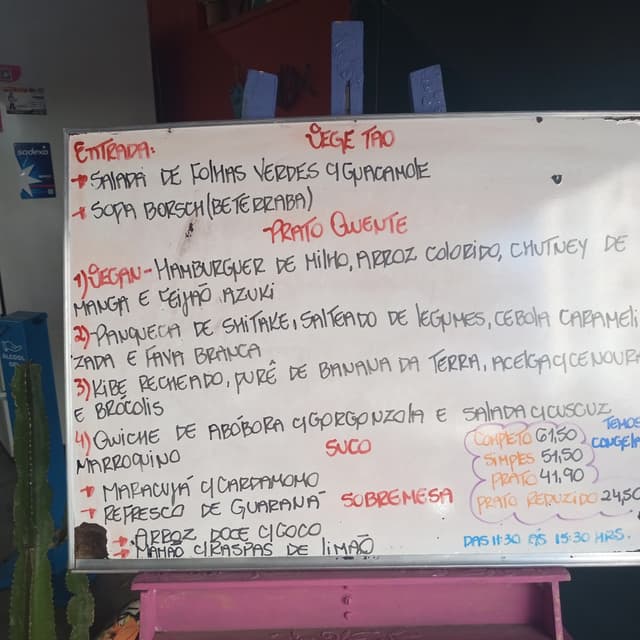 VEGE TAO
ENTRADA:
SALADA DE FOLHAS VERDES C/GUACAMOLE
SOPA BORSCH (BETERRABA)
PRATO QUENTE
1) VEGAN - HAMBURGUER DE MILHO, ARROZ COLORIDO, CHUTNEY DE
MANGA E FEIJÃO AZUKI
2) PANQUECA DE SHITAKE, SALTEADO DE LEGUMES, CEBOLA CARAMELI
ZADA E FAVA BRANCA
3) KIBE RECHEADO, PURÊ DE BANANA DA TERRA, ACELGA C/CENOURA
E BRÓCOLIS
4) QUICHE DE ABÓBORA C/GORGONZOLA E SALADA C/CUSCUZ
MARROQUINO
SUCO
MARACUJÁ C/CARDAMOMO
REFRESCO DE GUARANÁ
SOBREMESA
ARROZ DOCE C/COCO
MAMÃO C/RASPAS DE LIMÃO
COMPLETO 61,50
SIMPLES 51,50
PRATO 41,90
PRATO REDUZIDO 24,50
TEMOS
CONGELA
DAS 11:30 ÀS 15:30 HRS.
sodexo
ÁLCOOL